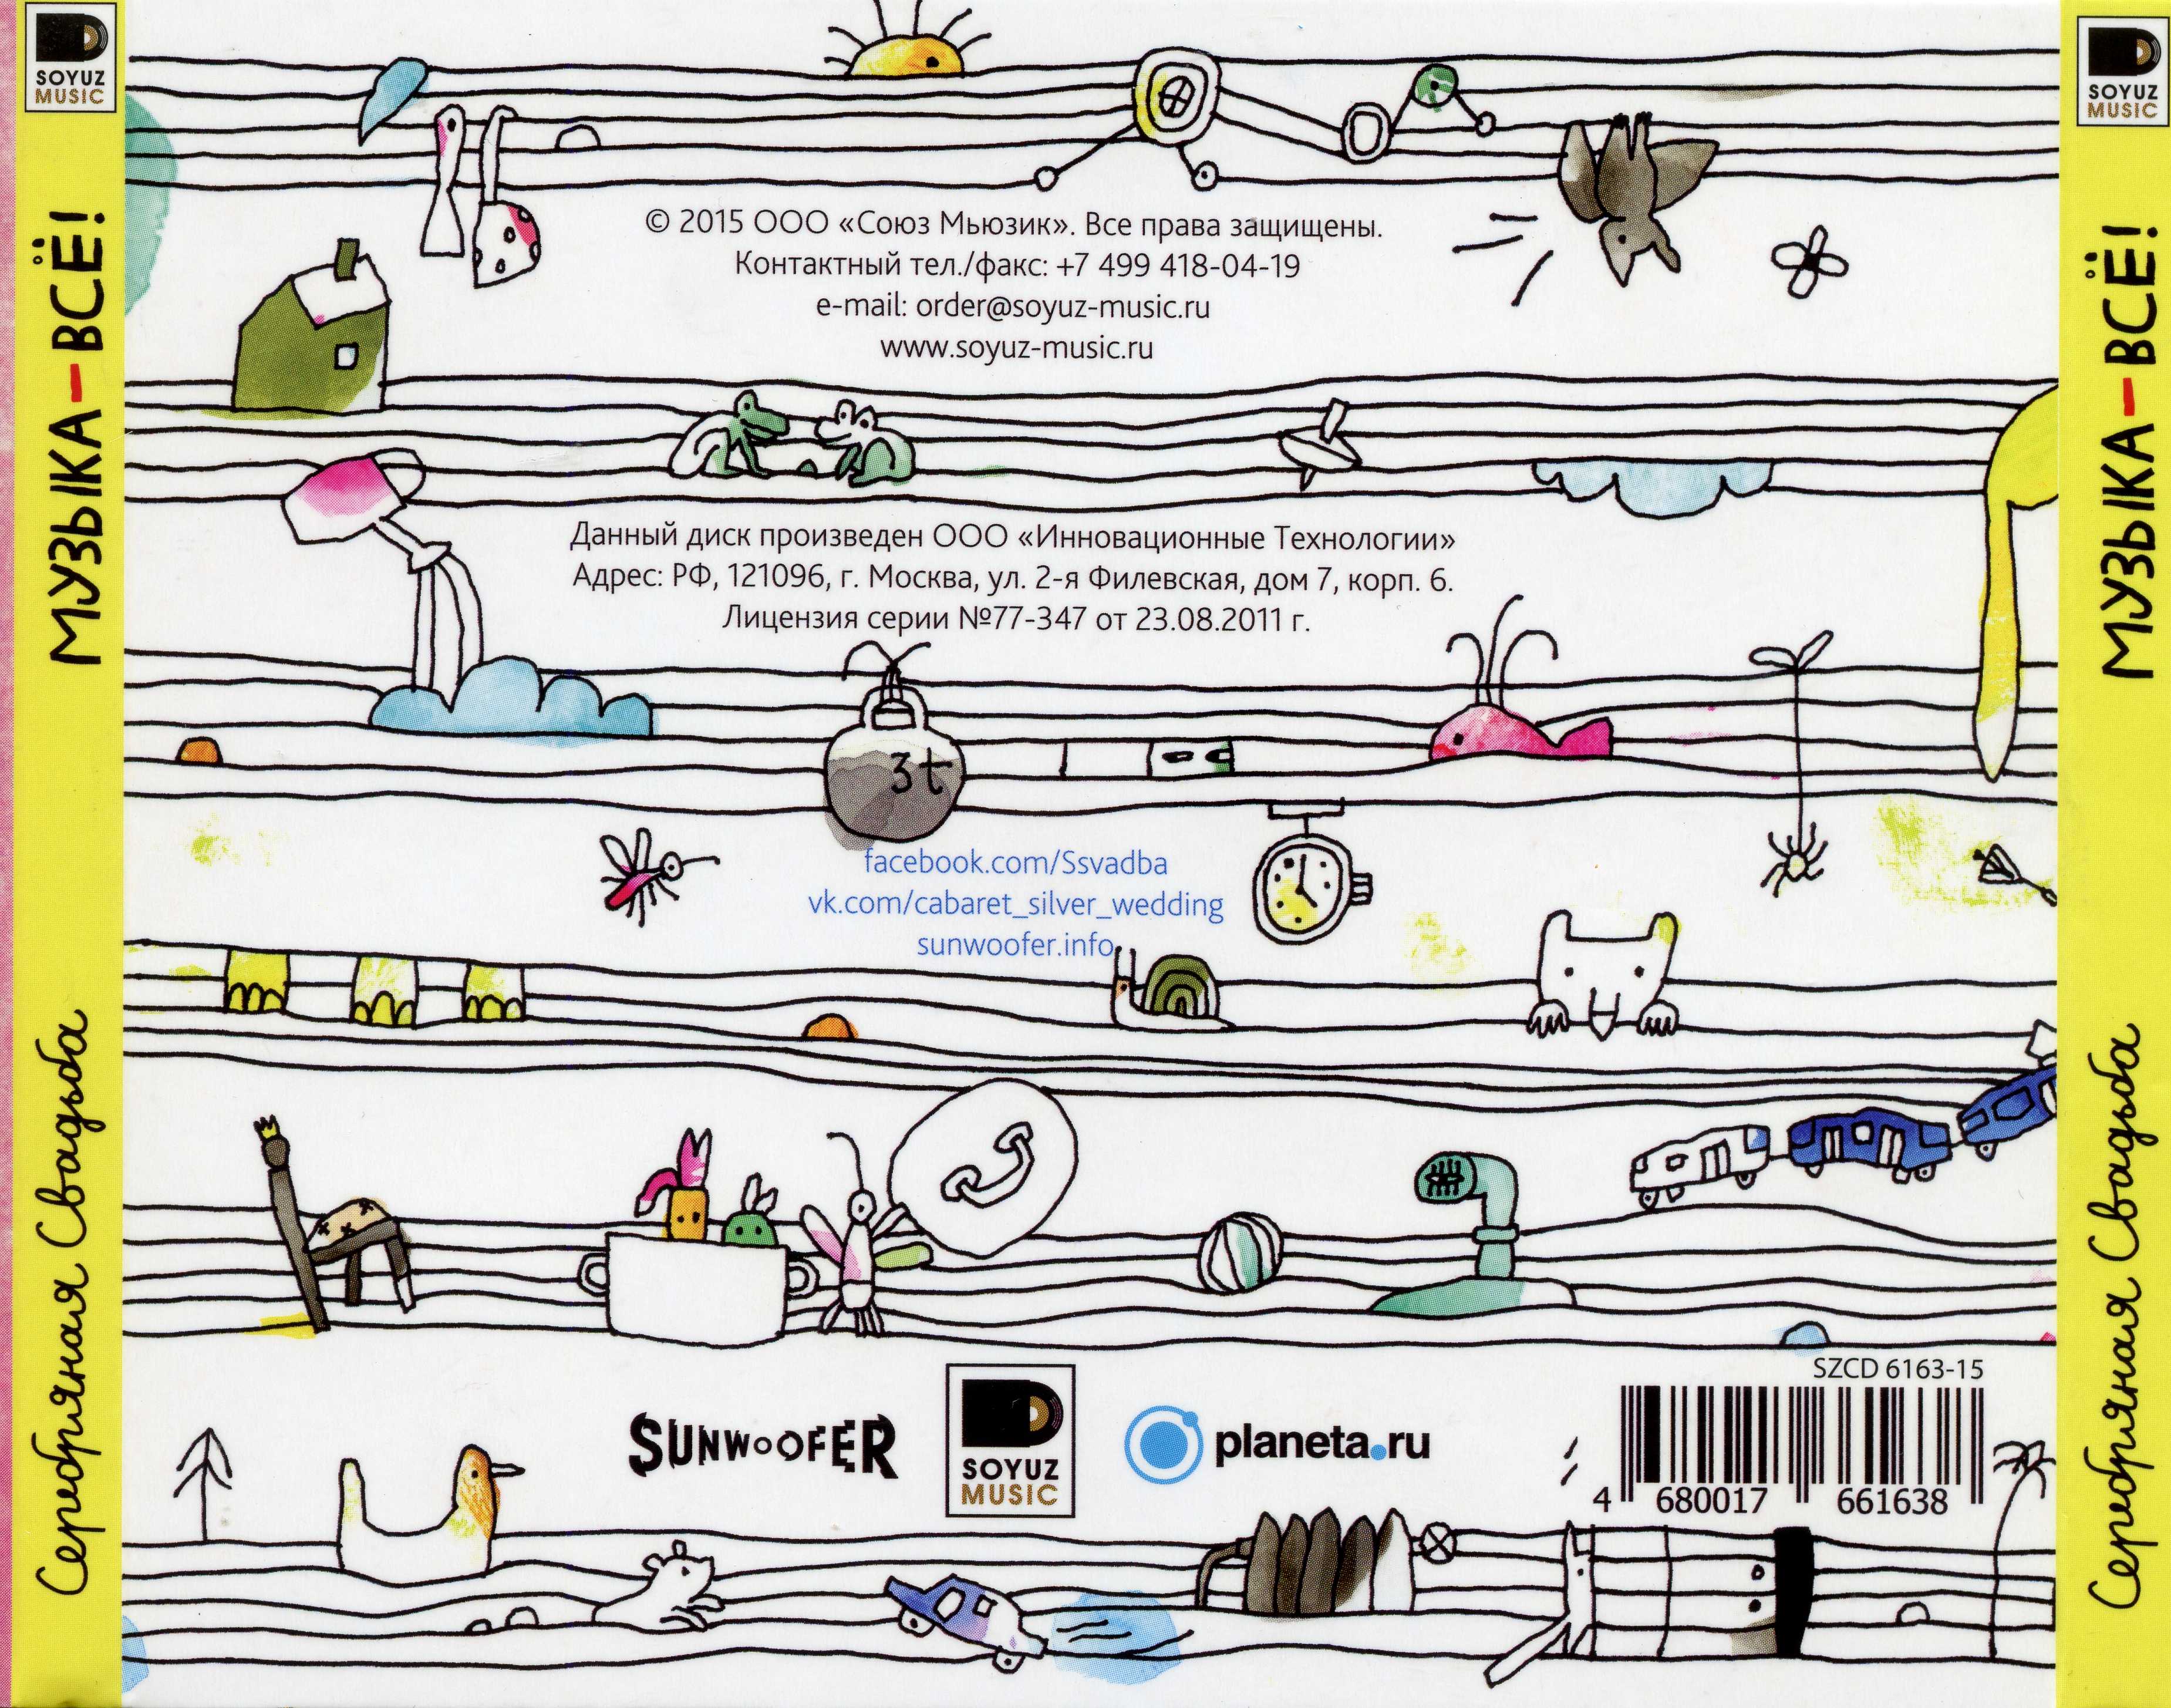 SOYUZ
MUSIC
МУЗЫКА–ВСЁ!
Серебряная Свадьба
© 2015 ООО «Союз Мьюзик». Все права защищены.
Контактный тел./факс: +7 499 418-04-19
e-mail: order@soyuz-music.ru
www.soyuz-music.ru
Данный диск произведен ООО «Инновационные Технологии»
Адрес: РФ, 121096, г. Москва, ул. 2-я Филевская, дом 7, корп. 6.
Лицензия серии №77-347 от 23.08.2011 г.
3t
facebook.com/Ssvadba
vk.com/cabaret_silver_wedding
sunwoofer.info
SUNWOOFER
SOYUZ
MUSIC
planeta.ru
SZCD 6163-15
4 680017 661638
SOYUZ
MUSIC
МУЗЫКА–ВСЁ!
Серебряная Свадьба